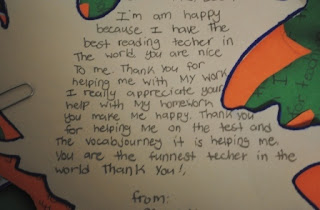 I'm am happy
because I have the
best reading techer in
The world you are nice
To me. Thank you for
helping me with My work
I really appreciate your
help with My homework
you make Me happy. Thank you
for helping Me on the test and
The vocabjourney it is helping me.
You are the funnest techer in the
world Thank You!,
from: